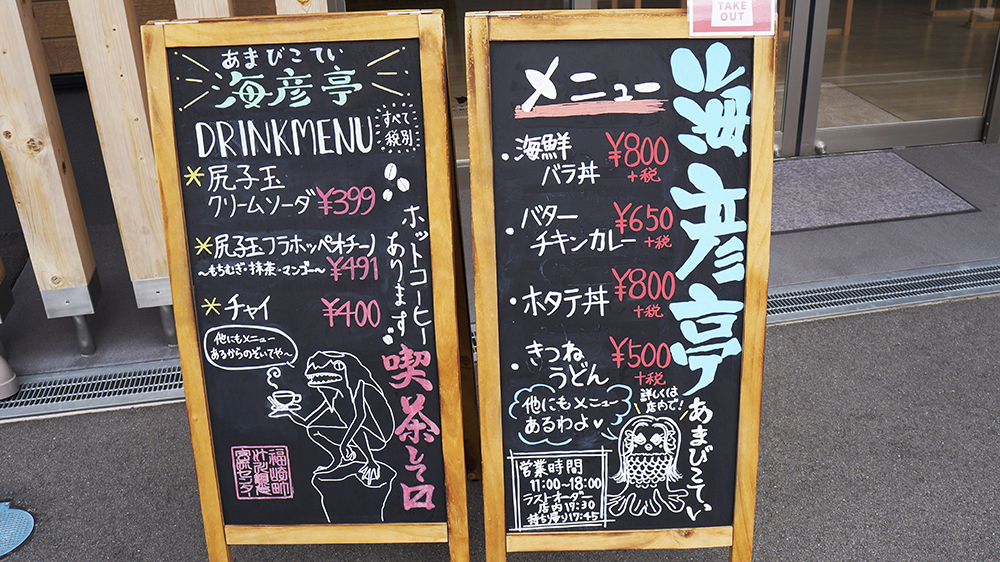 TAKE
OUT
あまびこてい
海彦亭
DRINKMENU
すべて
税別
*尻子玉
クリームソーダ ¥399
*尻子玉フラホッペオチーノ
～もちむぎ・抹茶・マンゴー～ ¥491
*チャイ ¥400
ホットコーヒー
あります
他にもメニュー
あるからのぞいてや～
喫茶して口
福崎町
メニュー
・海鮮
バラ丼
¥800
+税
・バター
チキンカレー
¥650
+税
・ホタテ丼
¥800
+税
・きつね
うどん
¥500
+税
他にもメニュー
あるわよ♥
詳しくは
店内で!
営業時間
11:00～18:00
ラストオーダー
店内17:30
持ち帰り17:45
海彦亭
あまびこてい